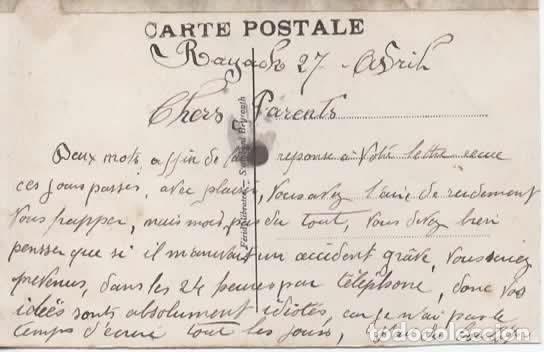 CARTE POSTALE
Rayack 27 Avril
Chers Parents
Deux mots affin de faire reponse à Votre lettre recue
ces jours passés, avec plaisir, Vous avez l'air de rudement
Vous frapper, mais moi pas du tout, Vous devez bien
pensser que si il m'arrivait un accident grâve, Vous seriez
prévenus, dans les 24 heures par téléphone, donc Vos
idéés sonts absolument idiotes, car je n'ai pas le
temps d'écrire tout les jours,
Férid Librater - Syrie
Beyrouth
todocoleccion